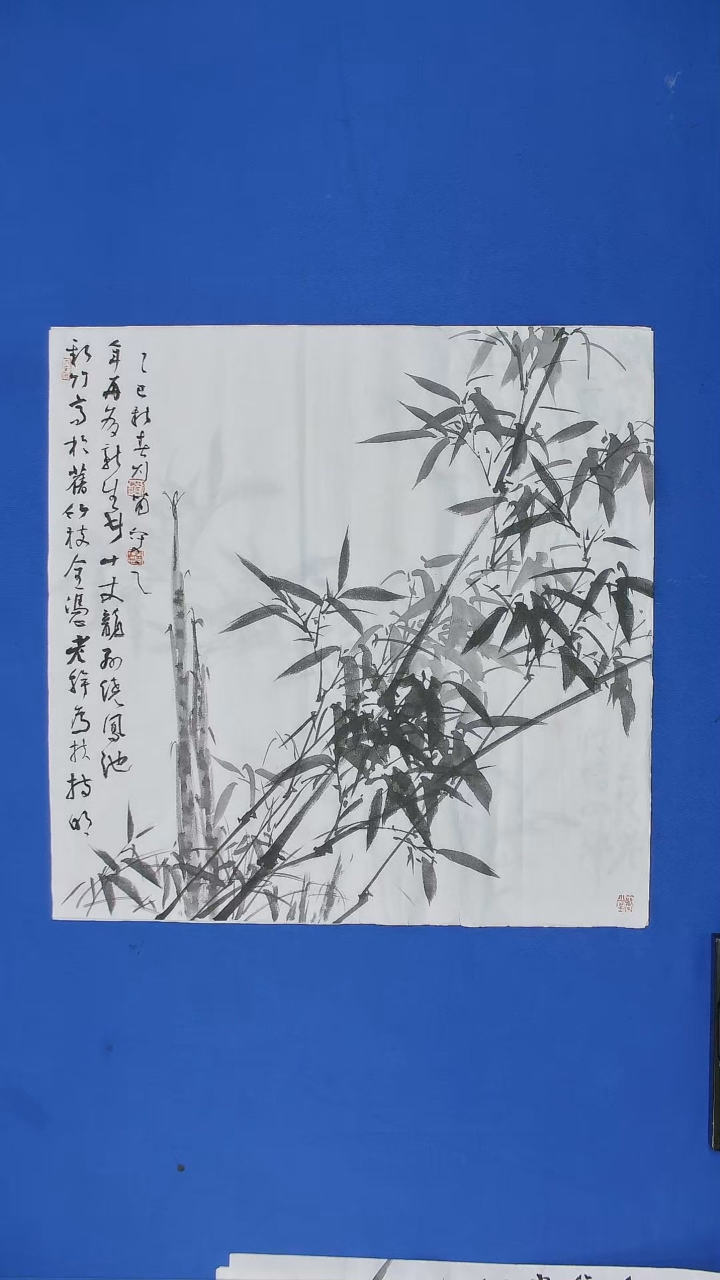 新竹高於舊竹枝全憑老幹为扶持明
年再有新生者十丈龍孙绕鳳池
乙巳新春